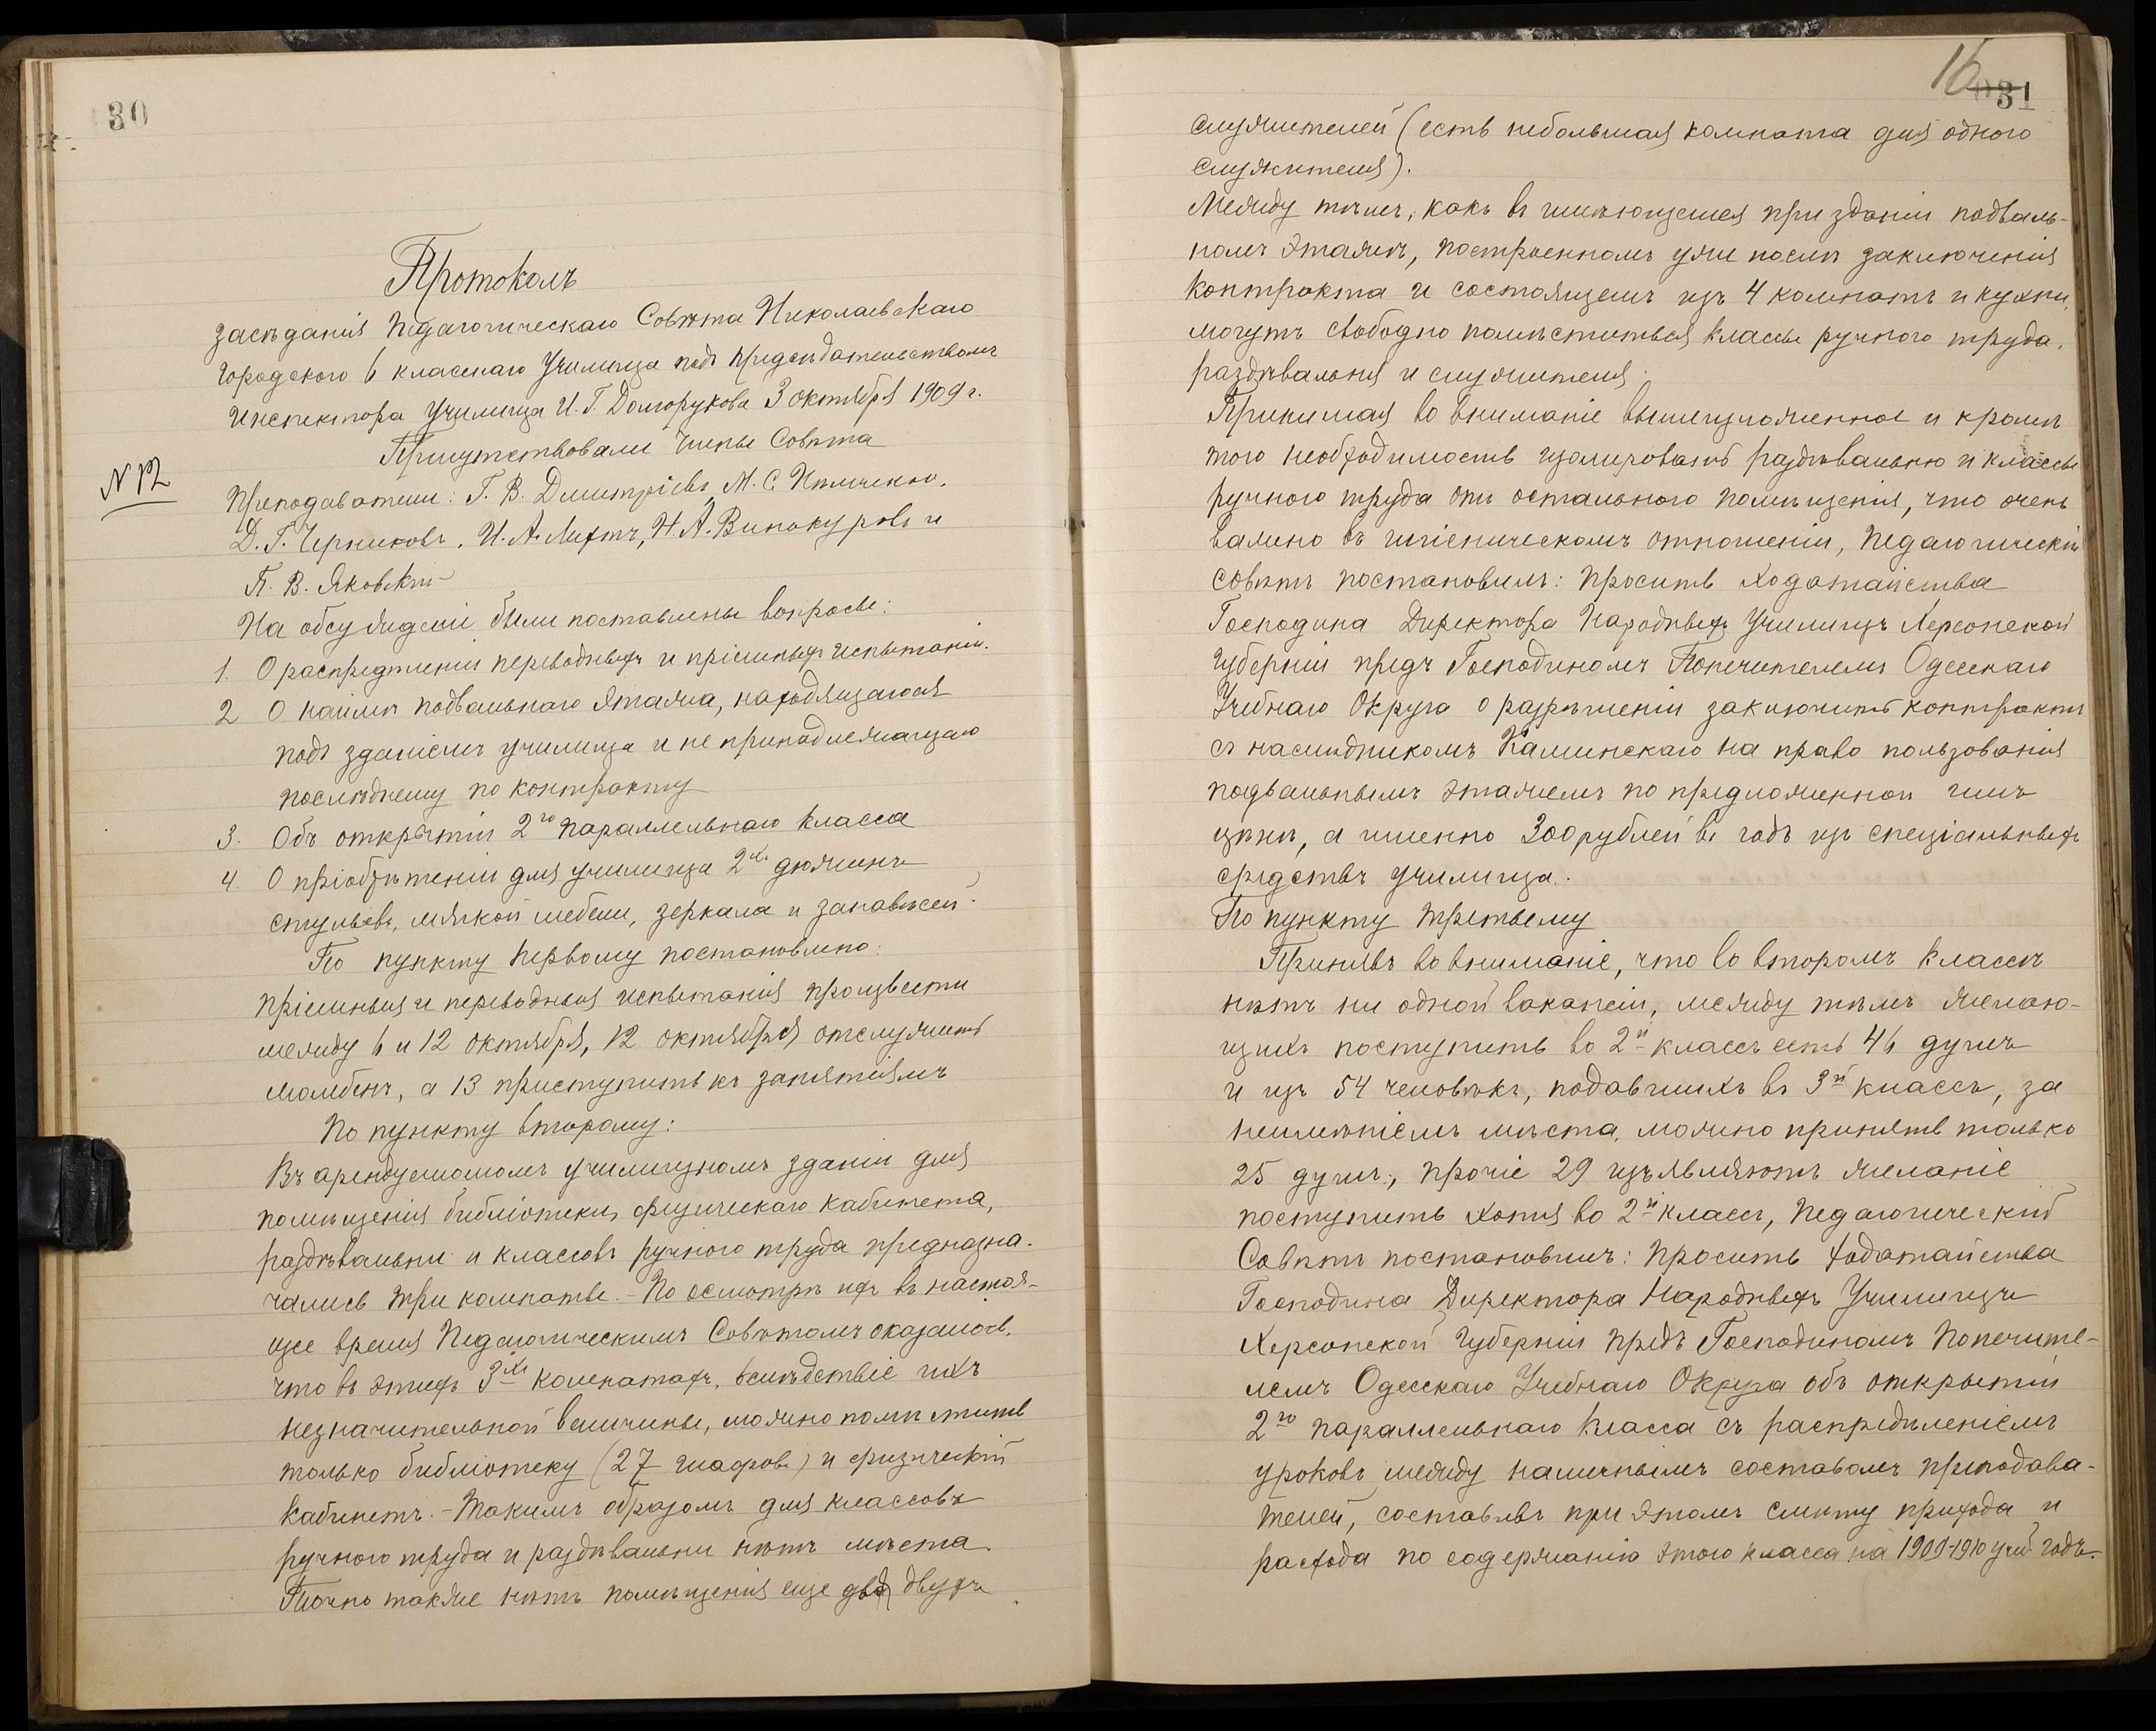 30
Протоколъ
засѣданія Педагогическаго Совѣта Николаевскаго
городского 6 класснаго Училища подъ предсѣдательствомъ
инспектора училища И. Г. Долгорукова 3 октября 1909 г.
Присутствовали члены Совѣта
N 12
преподаватели: Г. В. Дмитріевъ, М. С.
Д. Г. Черниковъ, И. А. Лихтъ, Н. А. Винокуровъ и
П. В. Яковскій
На обсужденіи были поставлены вопросы:
1. О распредѣленіи переводныхъ и пріемныхъ испытаній.
2 О наймѣ подвальнаго этажа, находящагося
подъ зданіемъ училища и не принадлежащаго
послѣднему по контракту
3. Объ открытіи 2го параллельнаго класса
4. О пріобрѣтеніи для училища 2хъ дюжинъ
стульевъ, мягкой мебели, зеркала и занавѣсей.
По пункту первому постановлено:
пріемныя и переводныя испытанія произвести
между 6 и 12 октября, 12 октября отслужить
молебенъ, а 13 приступить къ занятіямъ
По пункту второму:
Въ арендуемомомъ училищномъ зданіи для
помѣщенія библіотеки, физическаго кабинета,
раздѣвальни и классовъ ручного труда предназна-
чались три комнаты. – По осмотрѣ ихъ въ настоя-
щее время Педагогическимъ Совѣтомъ оказалось,
что въ этихъ 3хъ комнатахъ, вслѣдствіе ихъ
незначительной величины, можно помѣстить
только библіотеку (27 шафовъ) и физическій
кабинетъ. – Такимъ образомъ для классовъ
ручного труда и раздѣвальни нѣтъ мѣста.
Точно также нѣтъ помѣщенія еще для двухъ
16
031
служителей (есть небольшая комната для одного
служителя).
Между тѣмъ, какъ въ имѣющемся при зданіи подваль-
номъ этажѣ, построенномъ уже послѣ заключенія
контракта и состоящемъ изъ 4 комнатъ и кухни,
могутъ свободно помѣститься классы ручного труда,
раздѣвальня и служителя.
Принимая во вниманіе вышеизложенное и кромѣ
того необходимость изолировать раздѣвальню и классы
ручного труда отъ остального помѣщенія, что очень
важно въ гигіеническомъ отношеніи, Педагогическій
совѣтъ постановилъ: просить ходатайства
Господина Директора Народныхъ Училищъ Херсонской
губерніи предъ Господиномъ Попечителемъ Одесскаго
Учебнаго Округа о разрѣшеніи заключить контрактъ
съ наслѣдникомъ Каминскаго на право пользованія
подвальнымъ этажемъ по предложенной имъ
цѣнѣ, а именно 300 рублей въ годъ изъ спеціальныхъ
средствъ училища.
По пункту третьему
Принявъ во вниманіе, что во второмъ классѣ
нѣтъ ни одной вакансіи, между тѣмъ желаю-
щихъ поступить во 2й классъ есть 46 душъ
и изъ 54 человѣкъ, подавшихъ въ 3й классъ, за
неимѣніемъ мѣста, можно принять только
25 душъ, прочіе 29 изъявляютъ желаніе
поступить хотя во 2й классъ, Педагогическій
Совѣтъ постановилъ: просить ходатайства
Господина Директора Народныхъ Училищъ
Херсонской Губерніи предъ Господиномъ Попечите-
лемъ Одесскаго Учебнаго Округа объ открытіи
2го параллельнаго класса съ распредѣленіемъ
уроковъ между наличнымъ составомъ препoдава-
телей, составивъ при этомъ смѣту прихода и
расхода по содержанію этого класса на 1909-1910 учеб. годъ.